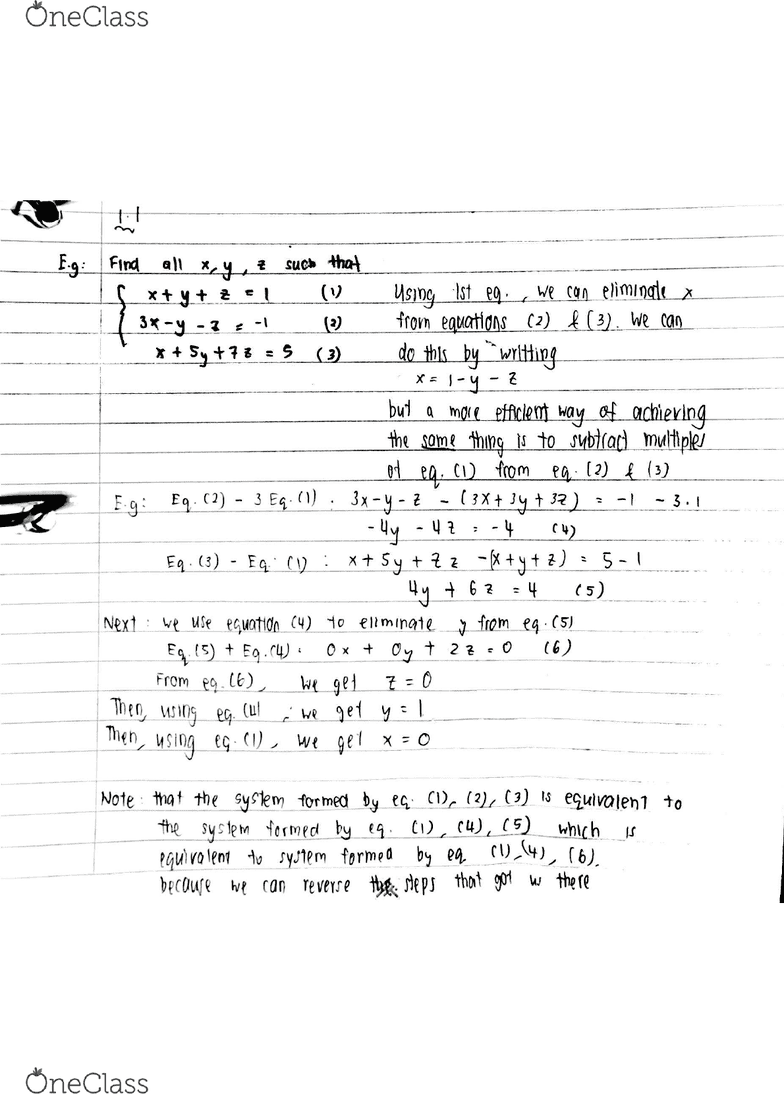 OneClass
1.1
E.g: Find all x, y, z such that
x + y + z = 1 (1) Using 1st eq., we can eliminate x
3x - y - z = -1 (2) from equations (2) & (3). We can
x + 5y + 7z = 5 (3) do this by writting
x = 1 - y - z
but a more efficient way of achieving
the same thing is to subtract multiples
of eq. (1) from eq. (2) & (3)
E.g: Eq. (2) - 3 Eq. (1) : 3x - y - z - (3x + 3y + 3z) = -1 - 3.1
-4y - 4z = -4 (4)
Eq. (3) - Eq. (1) : x + 5y + 7z - (x + y + z) = 5 - 1
4y + 6z = 4 (5)
Next : we use equation (4) to eliminate y from eq. (5)
Eq. (5) + Eq. (4) : 0x + 0y + 2z = 0 (6)
From eq. (6), we get z = 0
Then, using eq. (4), we get y = 1
Then, using eq. (1), we get x = 0
Note : that the system formed by eq. (1), (2), (3) is equivalent to
the system formed by eq. (1), (4), (5) which is
equivalent to system formed by eq (1), (4), (6).
because we can reverse the steps that got us there
OneClass